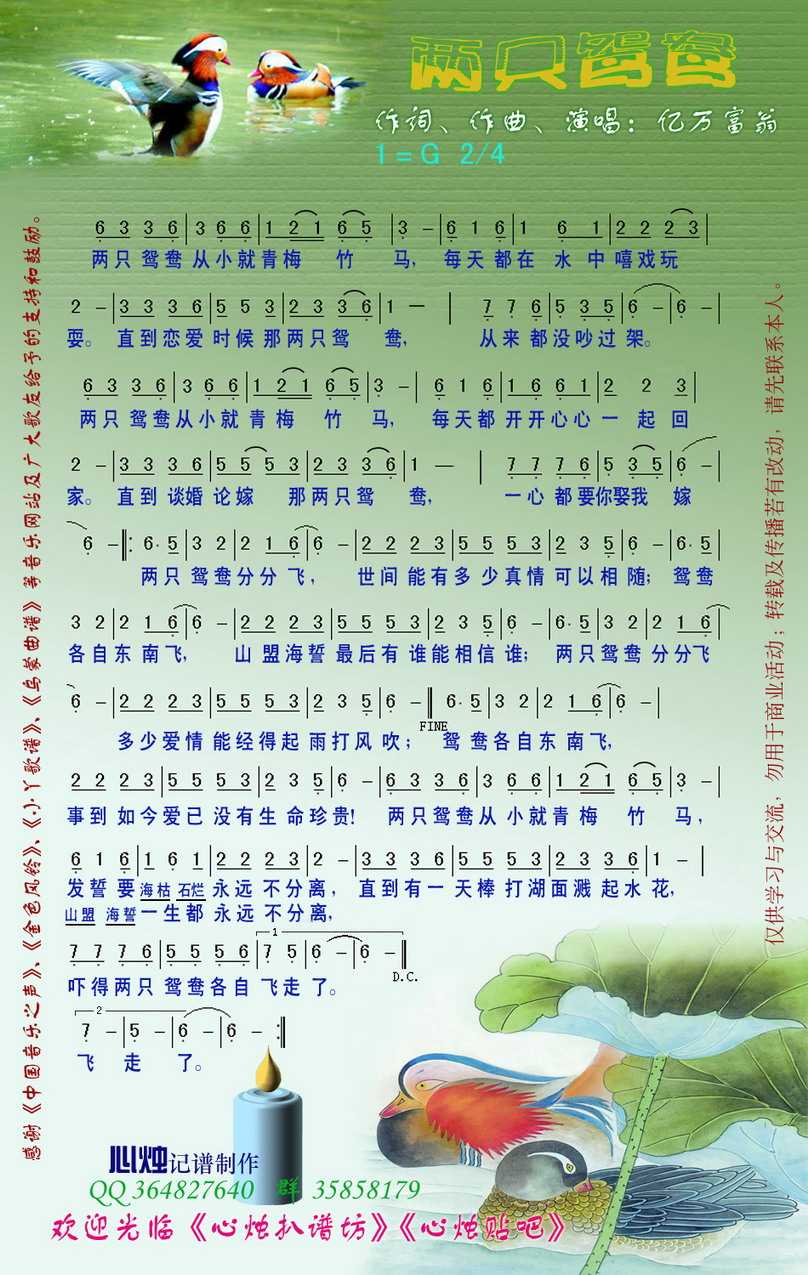 两只鸳鸯
作词、作曲、演唱：亿万富翁
1=G 2/4
6 3 3 6|3 6 6|1 2 1 6 5|3 -|6 1 6|1 6 1|2 2 2 3|
两只 鸳鸯 从小就青梅 竹 马， 每天 都在 水 中 嘻戏玩
2 -|3 3 3 6|5 5 3|2 3 3 6|1 —| 7 7 6|5 3 5|6 -|6 -|
耍。 直到恋爱 时候 那两只鸳 鸯， 从来 都没吵过 架。
6 3 3 6|3 6 6|1 2 1 6 5|3 -| 6 1 6|1 6 6 1|2 2 2 3|
两只 鸳鸯从小就 青梅 竹 马， 每天都 开开心心 一 起 回
2 -|3 3 3 6|5 5 5 3|2 3 3 6|1 —| 7 7 7 6|5 3 5|6 -|
家。 直到 谈婚 论嫁 那两只鸳 鸯， 一心 都要你娶我 嫁
6 -‖: 6· 5|3 2|2 1 6|6 -|2 2 2 3|5 5 5 3|2 3 5|6 -|6· 5|
两只 鸳鸯分分 飞， 世间 能有多 少真情 可以相 随； 鸳鸯
3 2|2 1 6|6 -|2 2 2 3|5 5 5 3|2 3 5|6 -|6· 5|3 2|2 1 6|
各自东 南飞， 山盟海誓 最后有 谁能相信 谁； 两只鸳鸯 分分飞
6 -|2 2 2 3|5 5 5 3|2 3 5|6 -‖6· 5|3 2|2 1 6|6 -|
FINE
多少爱情 能经得起 雨打风 吹； 鸳鸯各自东 南飞，
2 2 2 3|5 5 5 3|2 3 5|6 -|6 3 3 6|3 6 6|1 2 1 6 5|3 -|
事到 如今爱已 没有生 命珍贵! 两只鸳鸯从 小就青 梅 竹 马，
6 1 6|1 6 1|2 2 2 3|2 -|3 3 3 6|5 5 5 3|2 3 3 6|1 -|
发誓 要 海枯 石烂 永远 不分离， 直到有一 天棒 打湖面溅 起水 花，
山盟 海誓 一生都 永远 不分离，
7 7 7 6|5 5 5 6|1 7 5|6 -|6 -‖
D.C.
吓得两只 鸳鸯各自 飞走 了。
2 7 -|5 -|6 -|6 - :‖
飞 走 了。
心烛记谱制作
QQ 364827640 群 35858179
欢迎光临《心烛扒谱坊》《心烛贴吧》
感谢《中国音乐之声》、《金色风铃》、《小丫歌谱》、《乌蒙曲谱》等音乐网站及广大歌友给予的支持和鼓励。
仅供学习与交流，勿用于商业活动；转载及传播若有改动，请先联系本人。